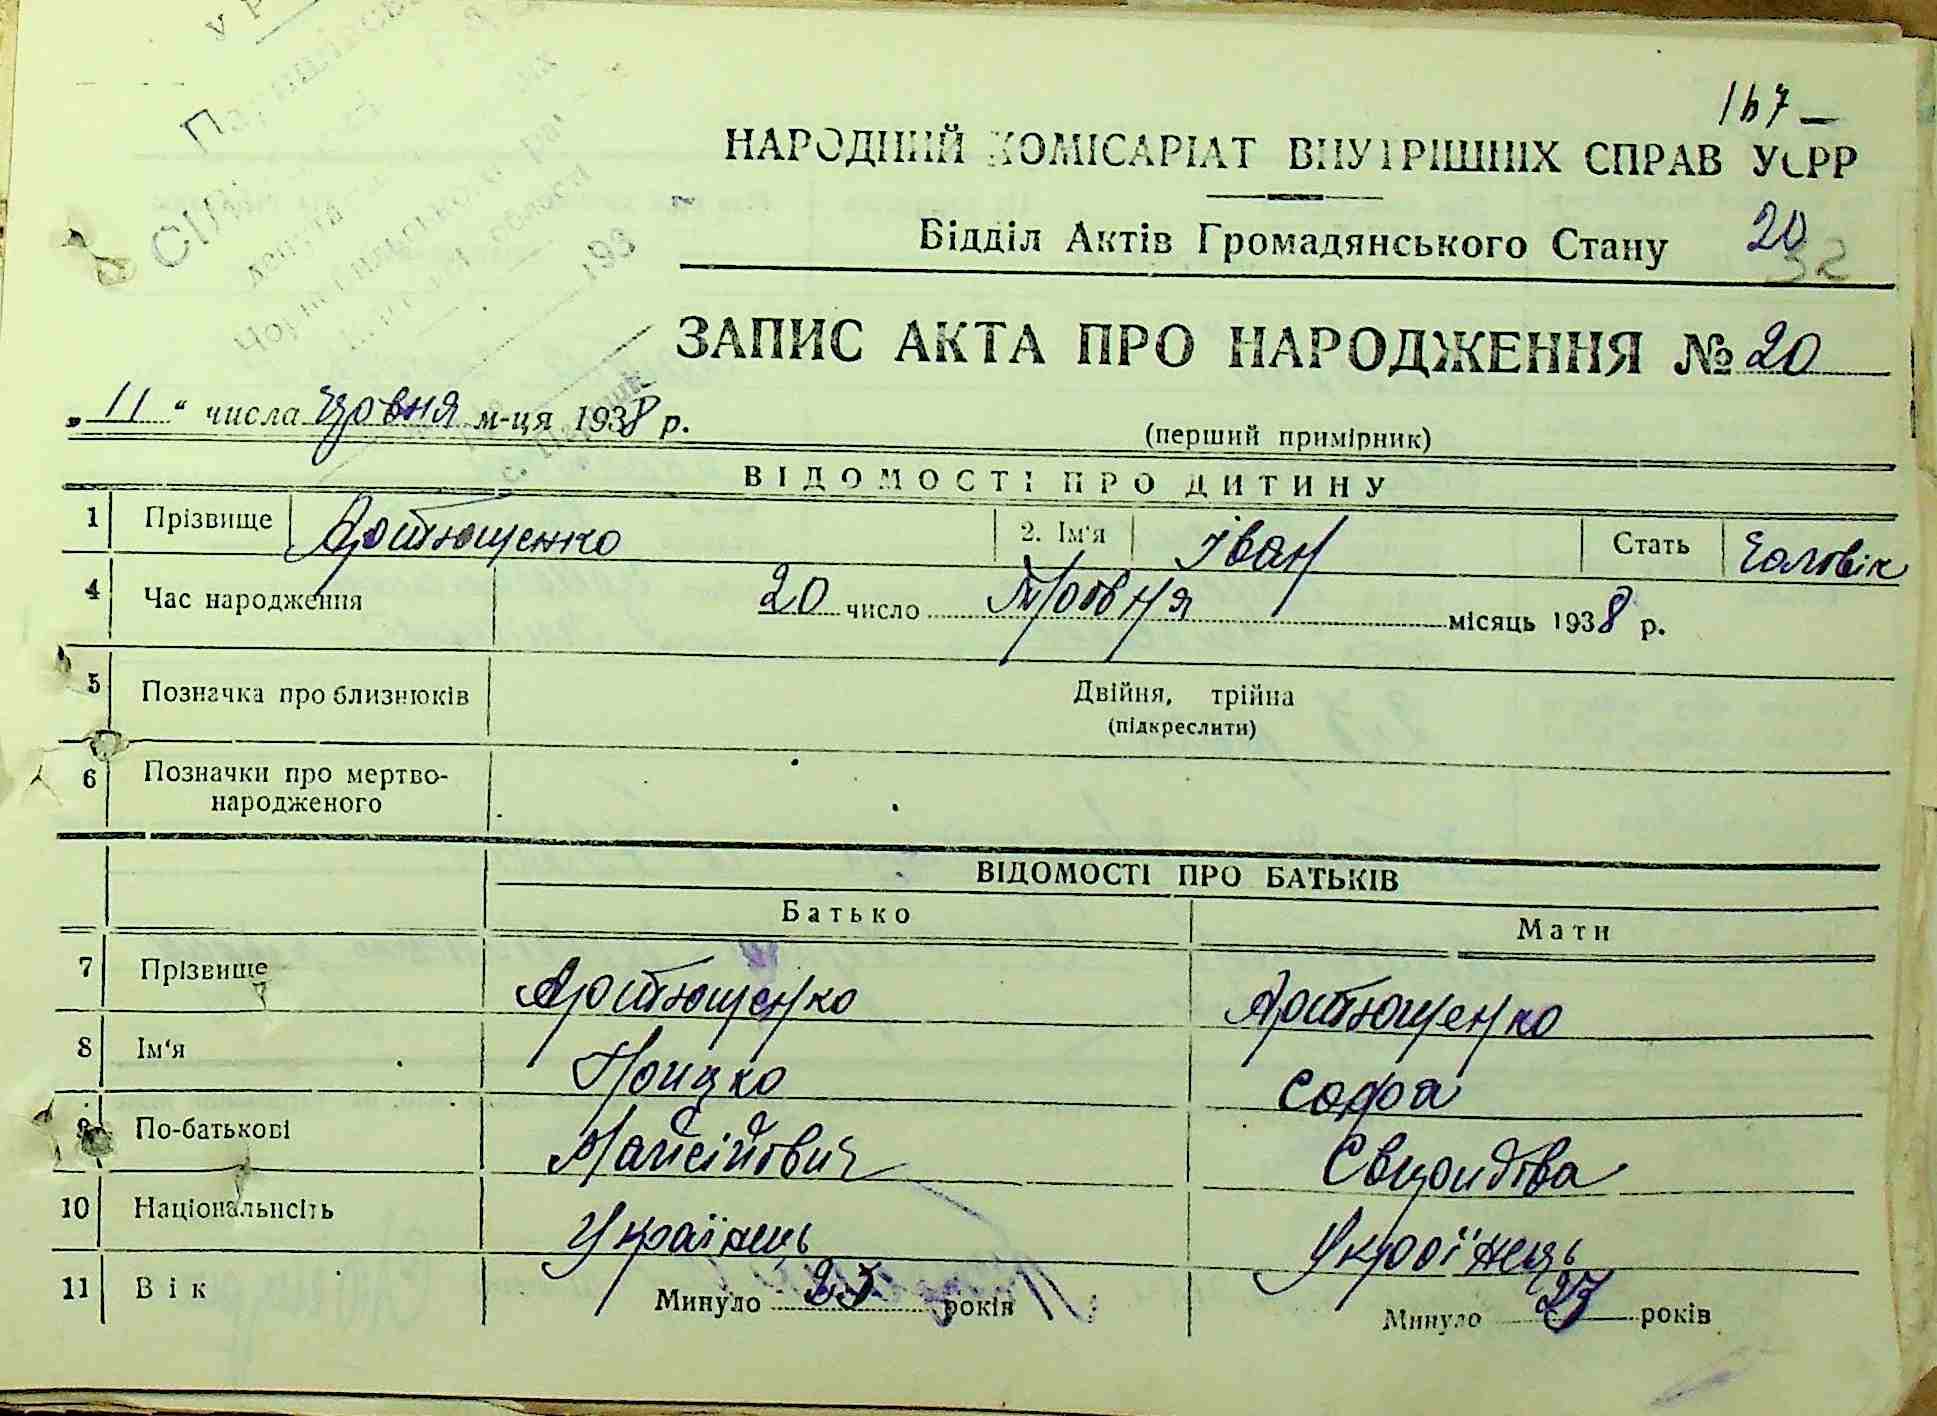 167
НАРОДНИЙ КОМІСАРІАТ ВНУТРІШНІХ СПРАВ УСРР
Відділ Актів Громадянського Стану 20
32
193
ЗАПИС АКТА ПРО НАРОДЖЕННЯ № 20
„11“ числа червня м-ця 1938 р.
(перший примірник)
ВІДОМОСТІ ПРО ДИТИНУ
1 Прізвище Артющенко 2. Ім'я Іван Стать Чоловік
4 Час народження 20 число Травня місяць 1938 р.
5 Позначка про близнюків Двійня, трійня
(підкреслити)
6 Позначки про мертво-
народженого
ВІДОМОСТІ ПРО БАТЬКІВ
Батько Мати
7 Прізвище Артющенко Артющенко
8 Ім'я Грицко Софа
9 По-батькові Мансійович
10 Національність Українець Українець
11 Вік Минуло 25 років Минуло 27 років